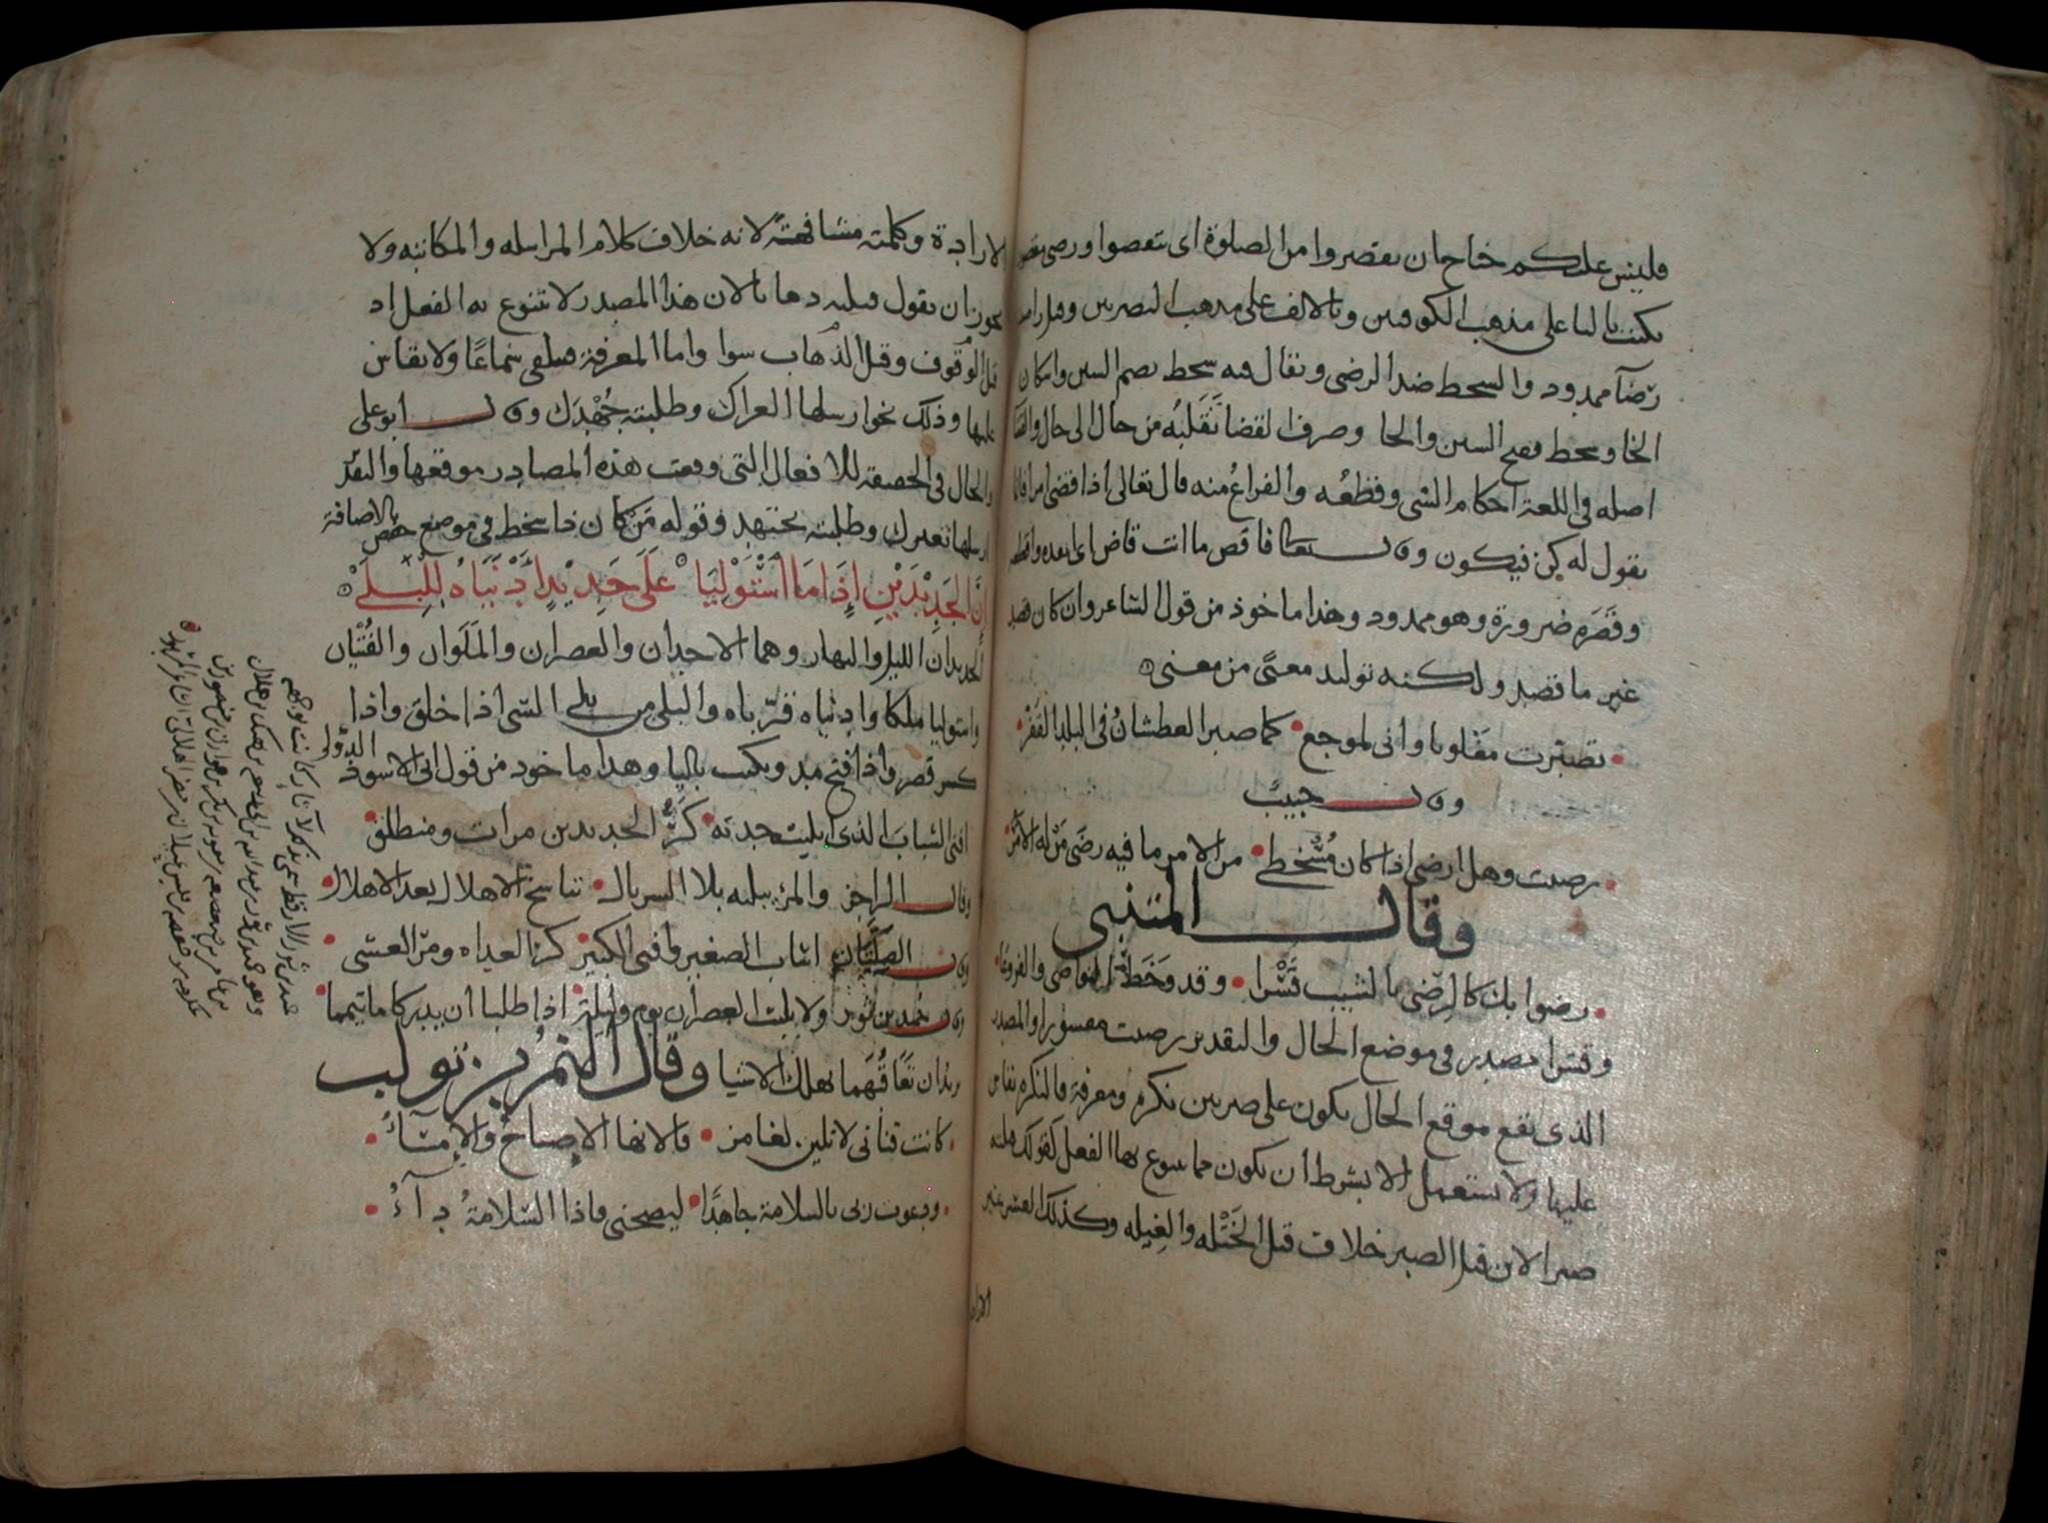 فليس عليكم جناح ان تقصروا من الصلوة اى تنقصوا ورضى مقصور
يكتب باليا على مذهب الكوفيين وبالالف على مذهب البصريين
رضآ ممدود والسخط ضد الرضى ويقال فيه سخط بضم السين واسكان
الخا وسخط بفتح السين والخا وصرف القضا تقلبه من حال الى حال والقضا
اصله فى اللغة احكام الشى وقطعه والفراغ منه قال تعالى اذا قضى امرا فانما
يقول له كن فيكون وقال تعالى فاقض ما انت قاض اى
وقصره ضرورة وهو ممدود وهذا ماخوذ من قول الشاعر وان كان قصد
غير ما قصد ولكنه توليد معنى من معنى
تصبرت مغلوبا وانى لموجع كما صبر العطشان فى البلد القفر
وقال حبيب
رضيت وهل ارضى اذا كان مسخطى من الامر ما فيه رضى من له الامر
وقال المتنبى
رضوا بك كالرضى بالشيب قسرا وقد وخط النواصى والفروعا
وقسرا مصدر فى موضع الحال والتقدير رضيت مقسورا والمصدر
الذى يقع موقع الحال يكون على ضربين نكرة ومعرفة فالنكرة يقاس
عليها ولا يستعمل الا بشرط ان يكون مما يتنوع بها الفعل كقولك قتلته
صبرا لان قتل الصبر خلاف قتل الختله والغيله وكذلك
الارادة وكلمته مشافهة لانه خلاف كلام المراسله والمكاتبه ولا
يجوز ان يقول قتلته ذهابا لان هذا المصدر لا يتنوع به الفعل اذ
قتل الوقوف وقتل الذهاب سوا واما المعرفة فيتلقى سماعا ولا يقاس
عليها وذلك نحو ارسلها العراك وطلبته جهدك وقال ابو على
والحال فى الحقيقة للافعال التى وقعت هذه المصادر موقعها والتقدير
ارسلها تعترك وطلبته يجتهد وقوله من كان ذا سخط فى موضع خفض بالاضافة
إن الجديدين إذا ما استوليا على جديد ادنياه للبلى
الجديدان الليل والنهار وهما الاجدان والعصران والملوان والفتيان
واستوليا ملكا وادنياه قرباه والبلى من بلى الشى اذا خلق واذا
كسر قصر واذا فتح مد ويكتب باليا وهذا ماخوذ من قول ابى الاسود الدؤلى
افنى الشباب الذى ابليت جدته كر الجديدين من ات ومنطلق
وقال الراجز والمرء يبليه بلا السربال تناسخ الاهلال بعد الاهلال
وقال الصلتان اشاب الصغير وافنى الكبير كر الغداه ومر العشى
وقال حميد بن ثور ولا يلبث العصران يوم وليلة اذا طلبا ان يدركا ما تيمما
يريد ان تعاقبهما يهلك الاشيا وقال النمر بن تولب
كانت قناتى لا تلين لغامز فالانها الاصباح والامساء
ودعوت ربى بالسلامة جاهدا ليصحنى فاذا السلامة داء